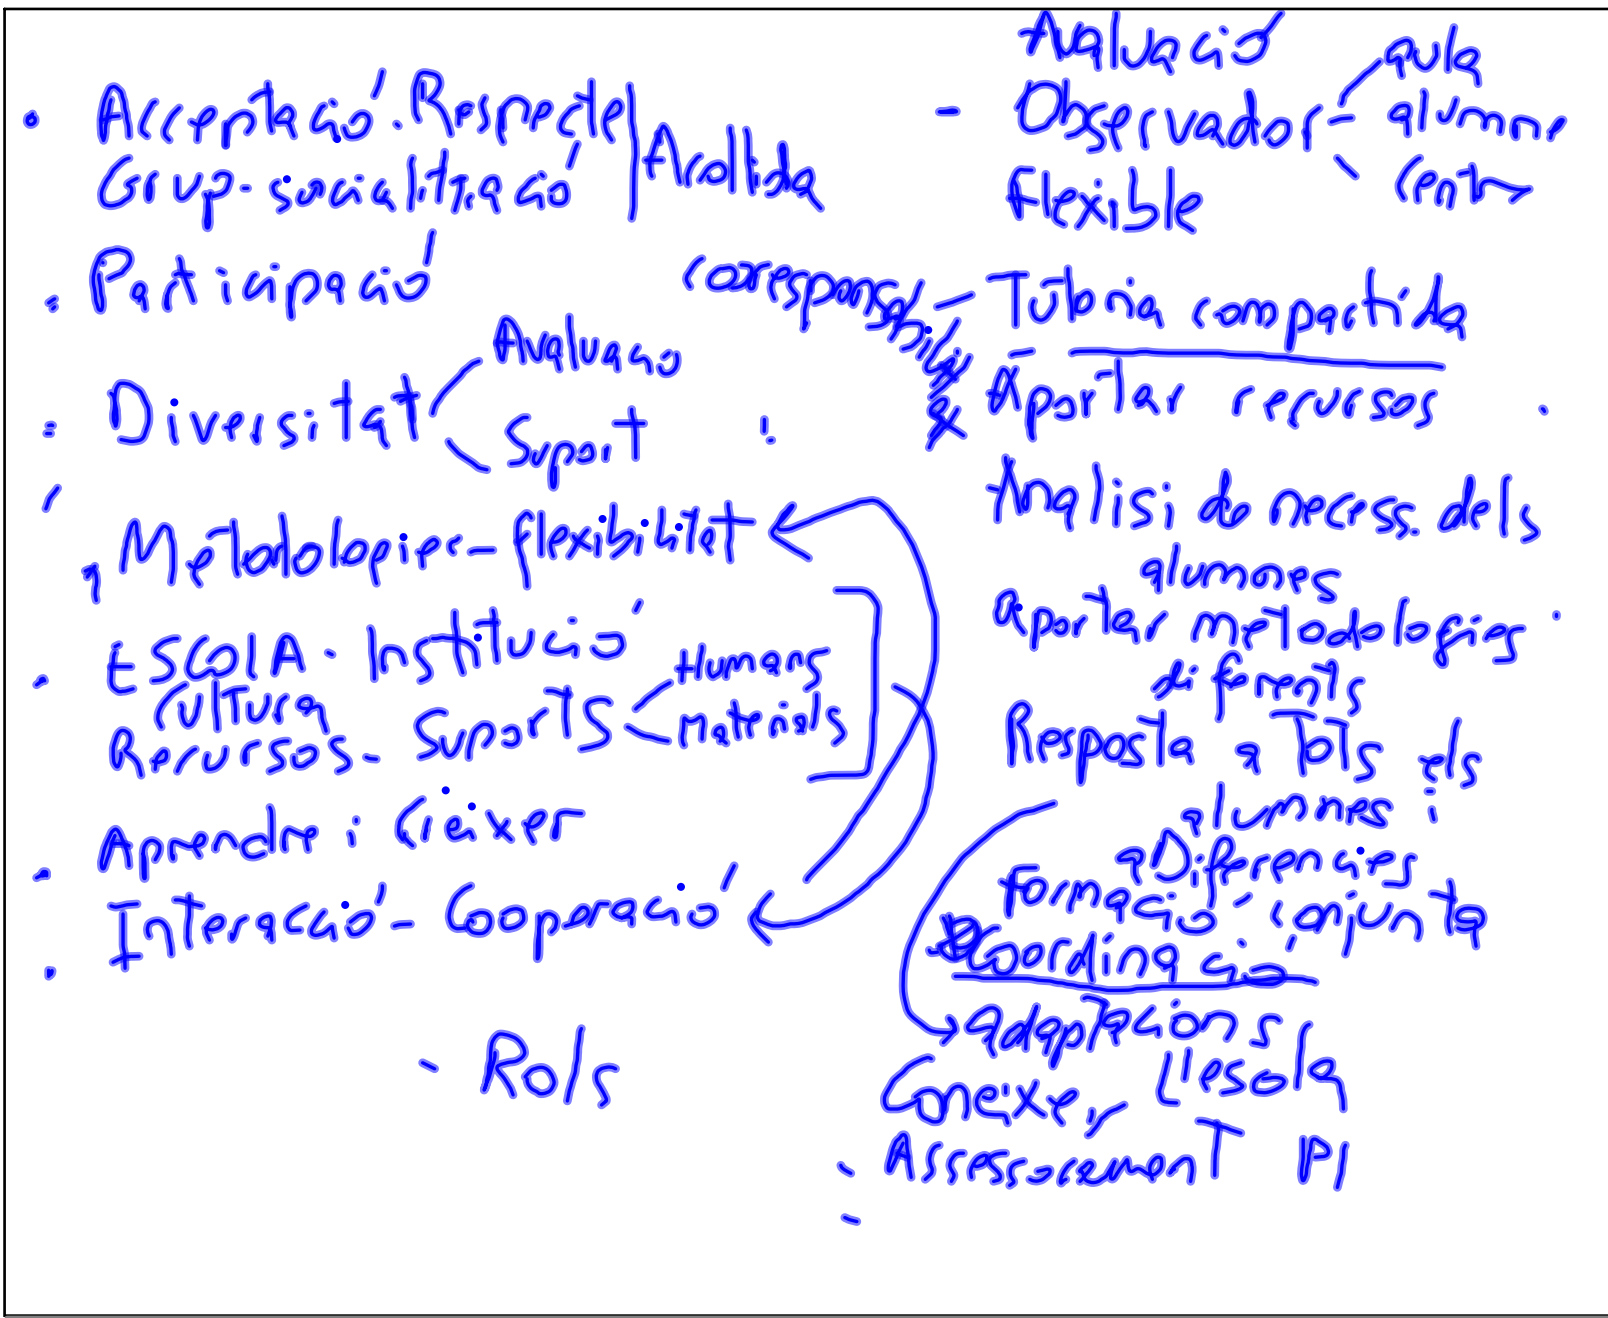 Acceptació. Respecte
Grup-socialització
Acollida
Participació
Diversitat
Avaluació
Suport
Metodologies-flexibilitat
ESCOLA. Institució
Cultura
Recursos-Suports
Humans
Materials
Aprendre i Créixer
Interacció-Cooperació
- Rols
Avaluació
- Observador
aula
alumne
centre
flexible
- Tutoria compartida
Aportar recursos
Analisi de necess. dels
alumnes
aportar metodologies
diferents
Resposta a Tots els
alumnes i
a Diferencies
formació conjunta
Coordinació
adaptacions
Coneixer L'escola
- Assessorament PI